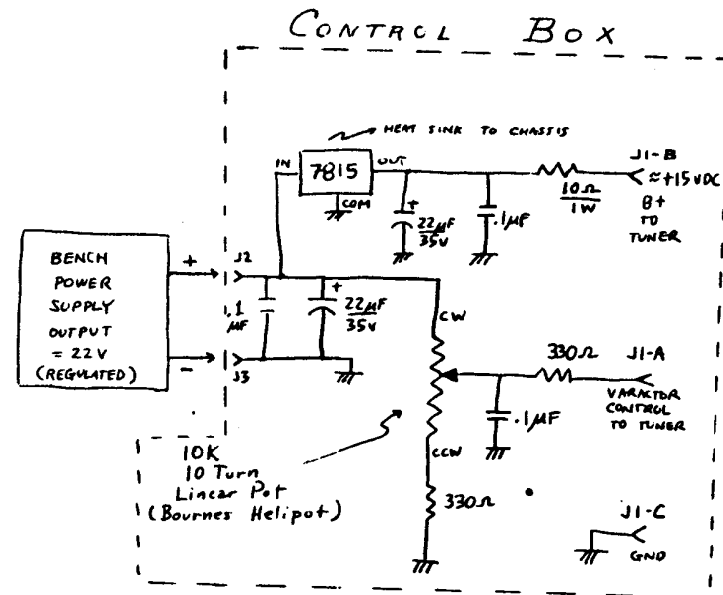 CONTROL BOX
HEAT SINK TO CHASSIS
IN
7815
OUT
COM
+
22µF
35V
.1µF
10Ω
1W
J1-B
≈+15VDC
B+
TO
TUNER
BENCH
POWER
SUPPLY
OUTPUT
= 22V
(REGULATED)
+
-
J2
J3
.1
µF
+
22µF
35V
CW
CCW
330Ω
J1-A
VARACTOR
CONTROL
TO TUNER
.1µF
10K
10 Turn
Linear Pot
(Bournes Helipot)
330Ω
J1-C
GND